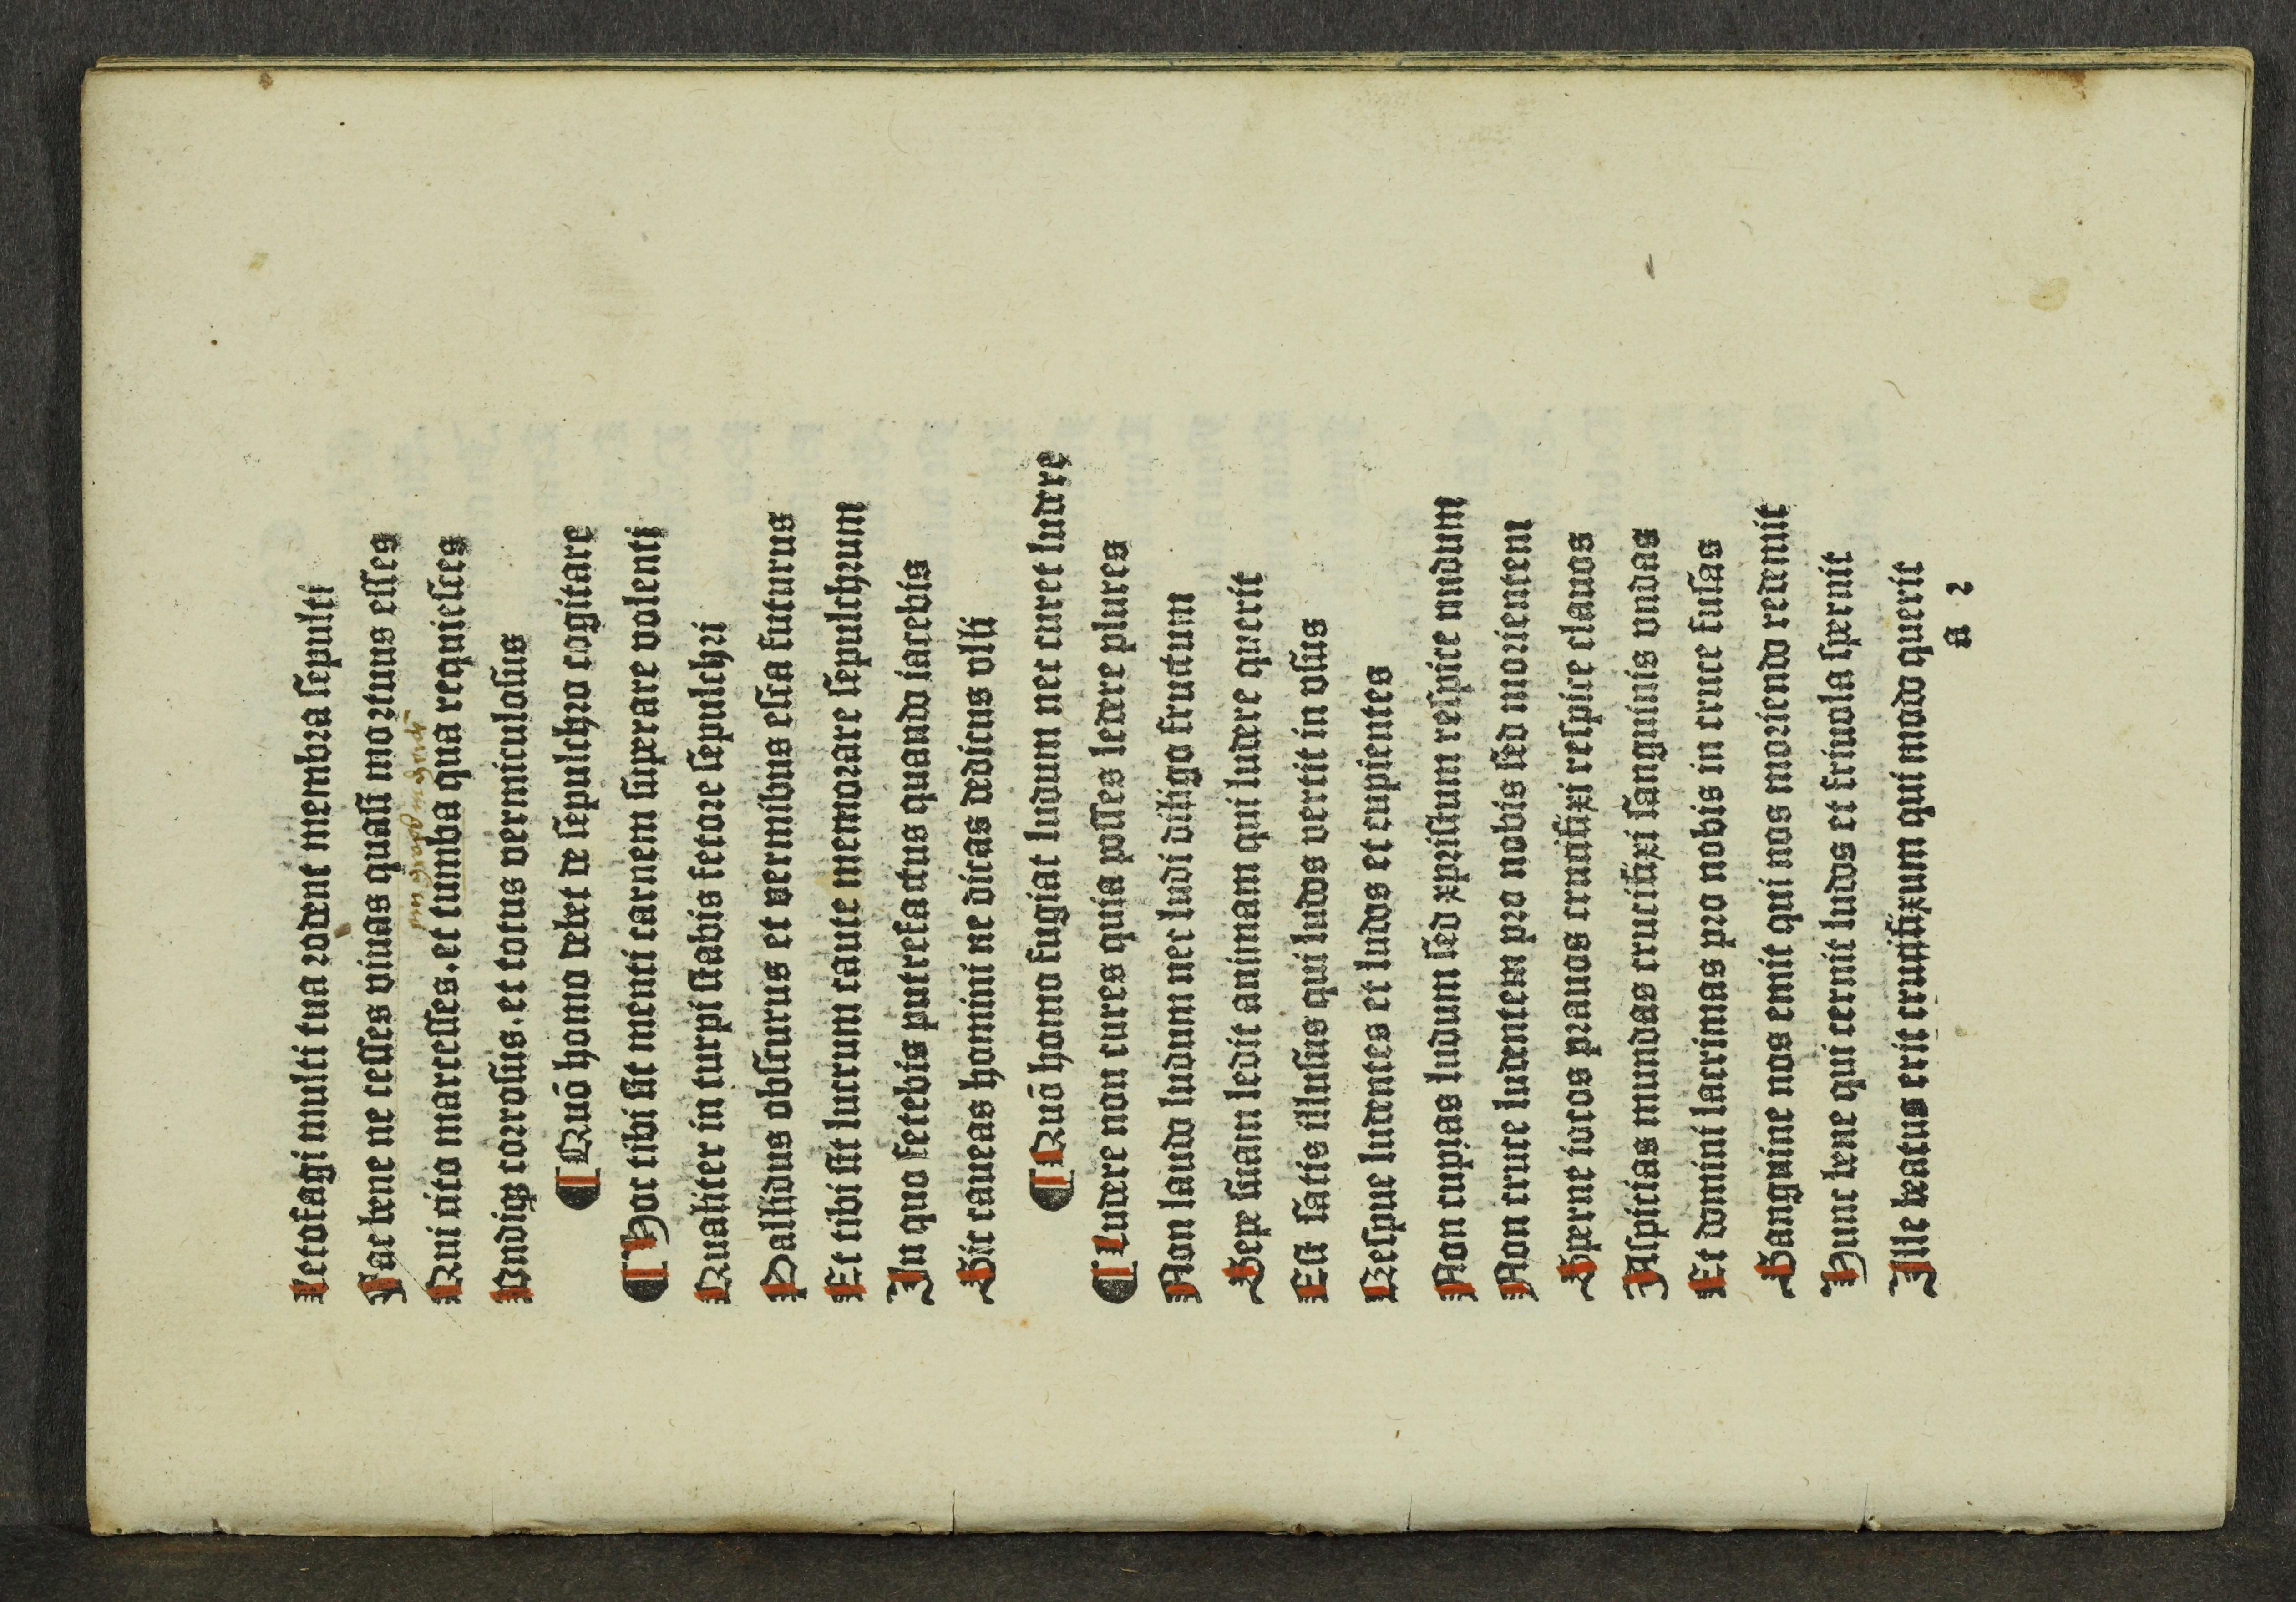 Letofagi multi tua rodent membra ſepulti
Fac bene ne ceſſes viuas quaſi mortuus eſſes
Qui cito marceſſes. et tumba qua requieſces
Vndiqꝫ corroſus. et totus vermiculoſus
¶ Quō homo debet de ſepulchro cogitare
¶ Hoc tibi ſit menti carnem ſuperare volenti
Qualiter in turpi ſtabis fetore ſepulchri
Pallidus obſcurus et vermibus eſca futurus
Et tibi ſit lucrum caute memorare ſepulchrum
In quo fetebis putrefactus quando iacebis
Sic caueas homini ne dicas dedicus vlli
¶ Quō homo fugiat ludum nec curet ludere
¶ Ludere non cures quia poſſes ledere plures
Non laudo ludum nec ludi diligo fructum
Sepe ſuam ledit animam qui ludere querit
Eſt ſatis illuſus qui ludos vertit in vſus
Reſpue ludentes et ludos et cupientes
Non cupias ludum ſed xpriſtum reſpice nudum
Non cruce ludentem pro nobis ſed morientem
Sperne iocos prauos crucifixi reſpice clauos
Aſpicias mundas crucifixi ſanguinis vndas
Et domini lacrimas pro nobis in cruce fuſas
Sanguine nos emit qui nos moriendo redemit
Hunc bene qui cernit ludos et friuola ſpernit
Ille beatus erit crucifixum qui modo querit
a 2